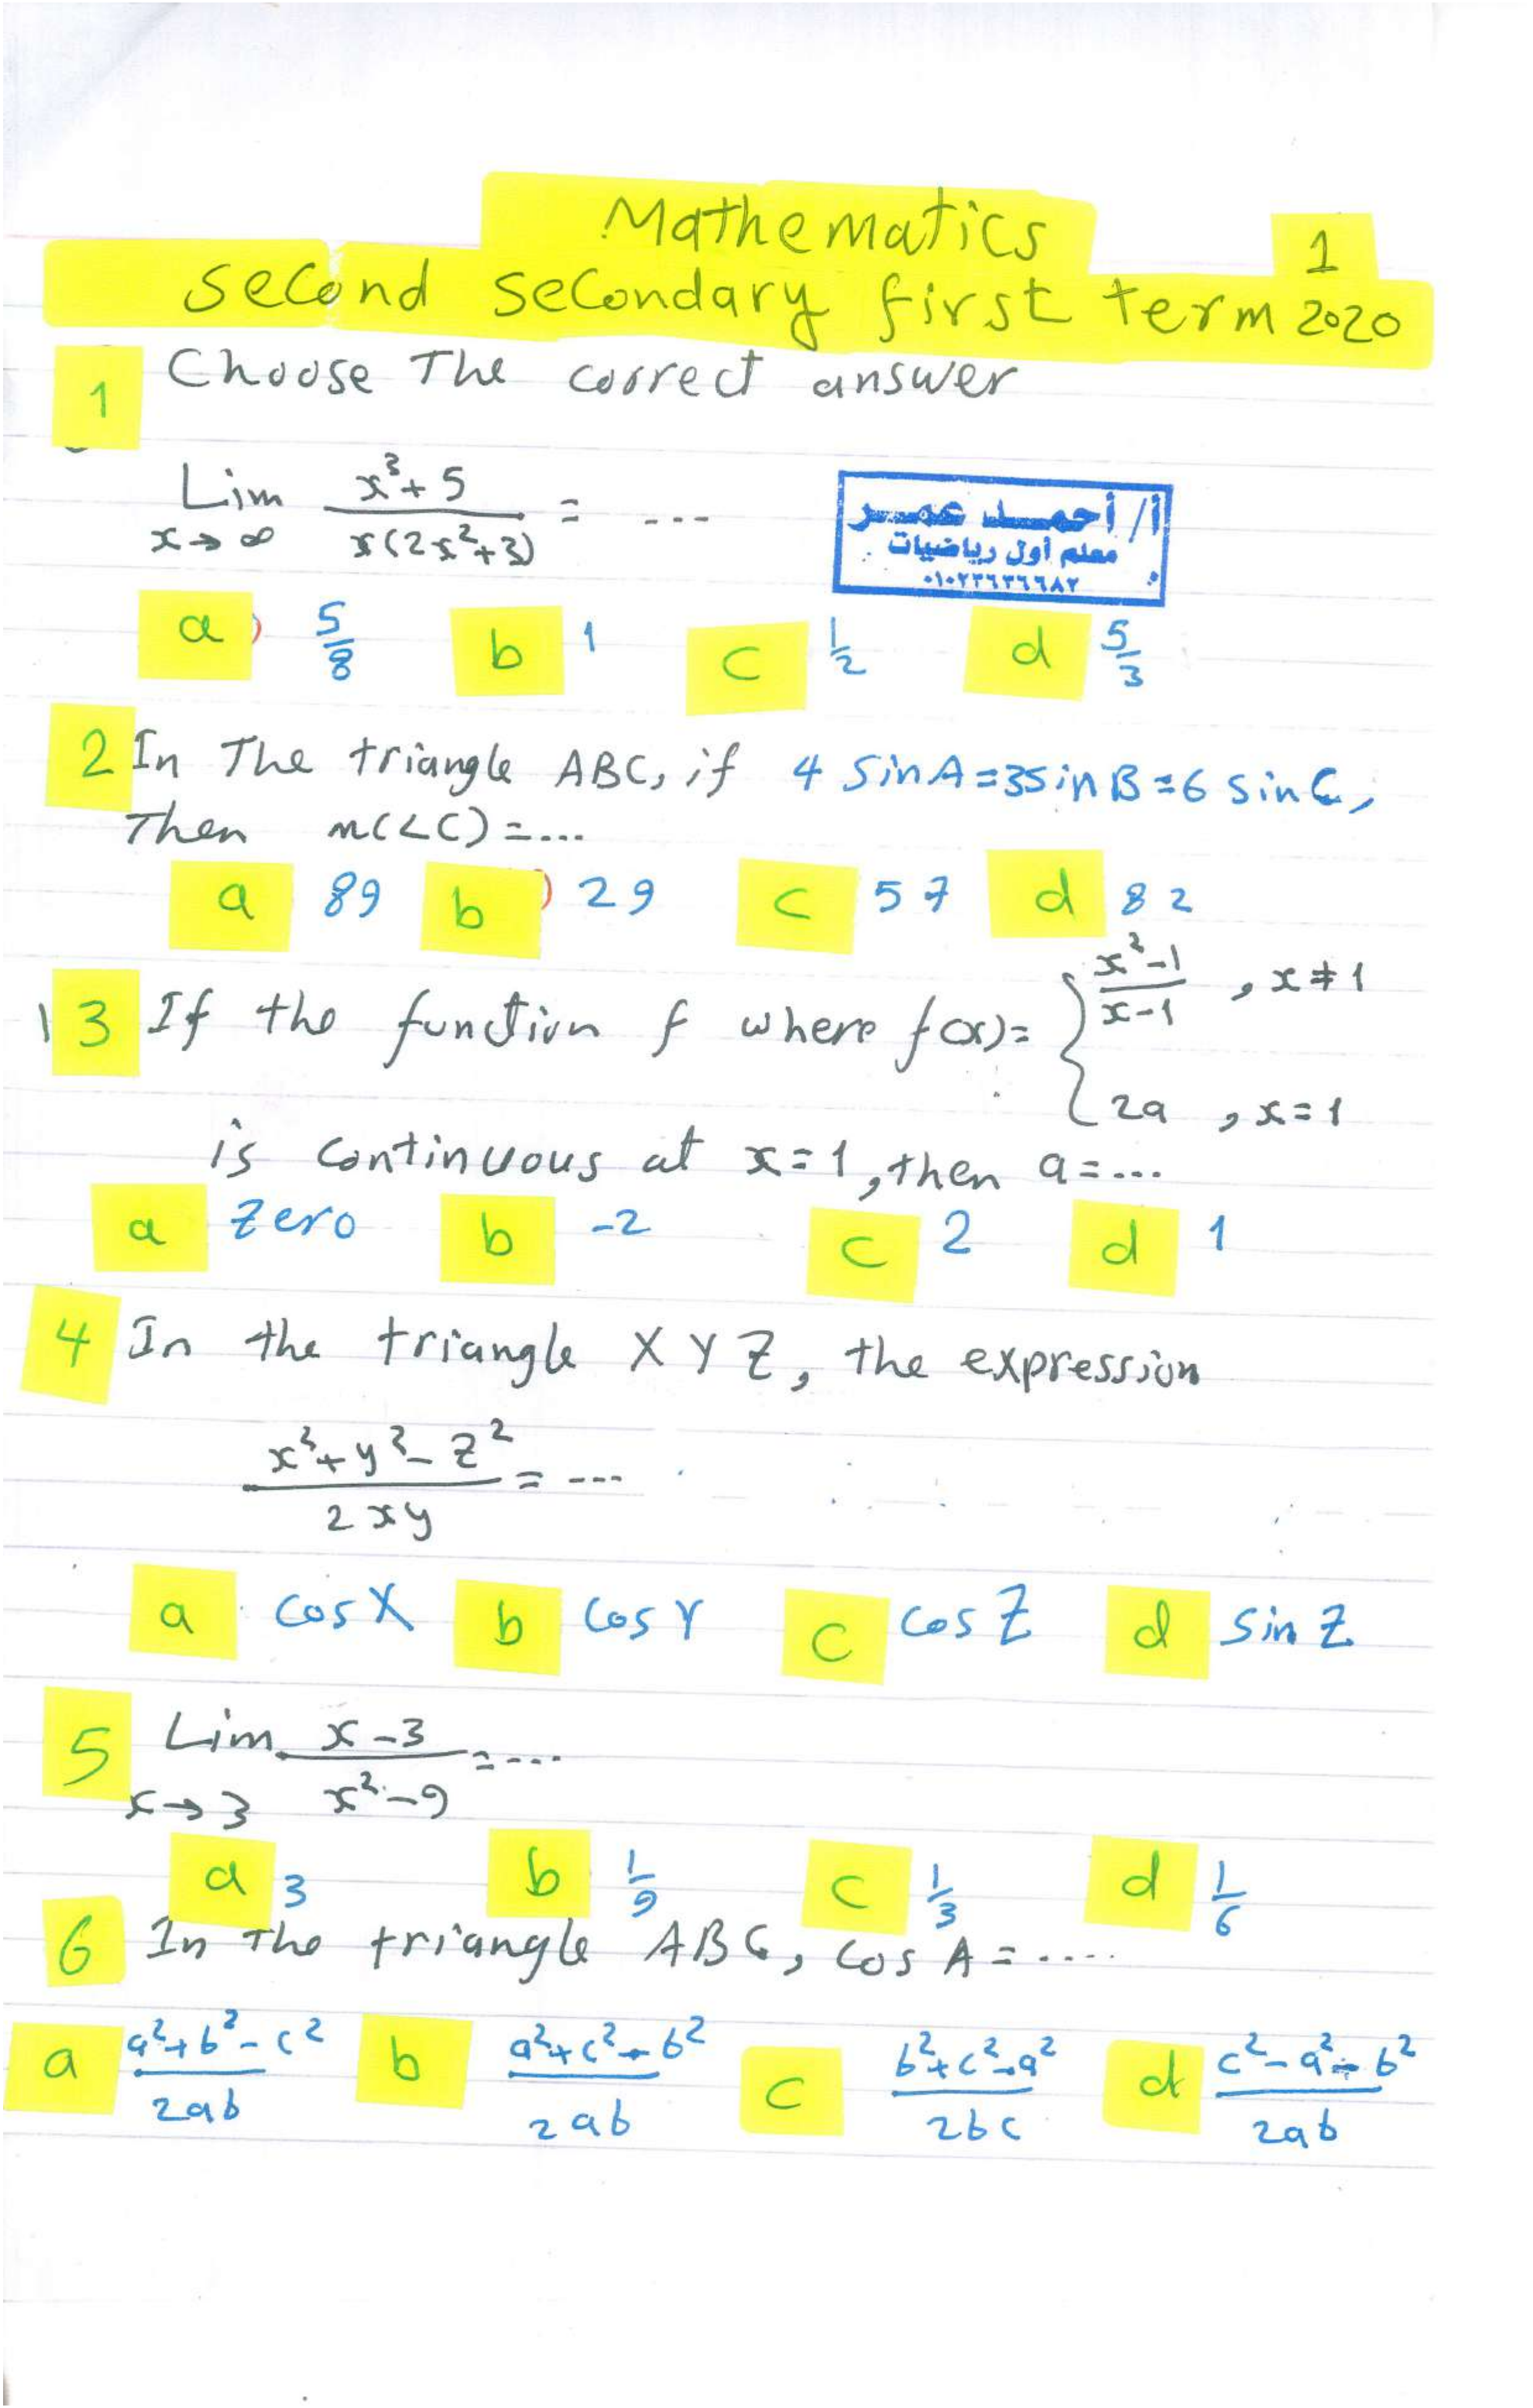 Mathematics 1
Second Secondary first term 2020
1 Choose The correct answer
Lim x→∞ (x³+5)/(x(2x²+3)) = ---
أ/ أحمد عمر
معلم أول رياضيات
٠١٠٢٢٦٣٦٦٨٢
a) 5/8 b 1 c 1/2 d 5/3
2 In The triangle ABC, if 4 sinA=3sinB=6 sinC,
Then m(∠C)=....
a 89 b) 29 c 57 d 82
3 If the function f where f(x)= { (x²-1)/(x-1) , x≠1
2a , x=1
is continuous at x=1, then a=....
a zero b -2 c 2 d 1
4 In the triangle XYZ, the expression
(x²+y²-z²)/(2xy) = ---
a cosX b cosY c cosZ d sinZ
5 Lim x→3 (x-3)/(x²-9) = ---
a 3 b 1/9 c 1/3 d 1/6
6 In The triangle ABC, cosA=....
a (a²+b²-c²)/(2ab) b (a²+c²-b²)/(2ab) c (b²+c²-a²)/(2bc) d (c²-a²-b²)/(2ab)